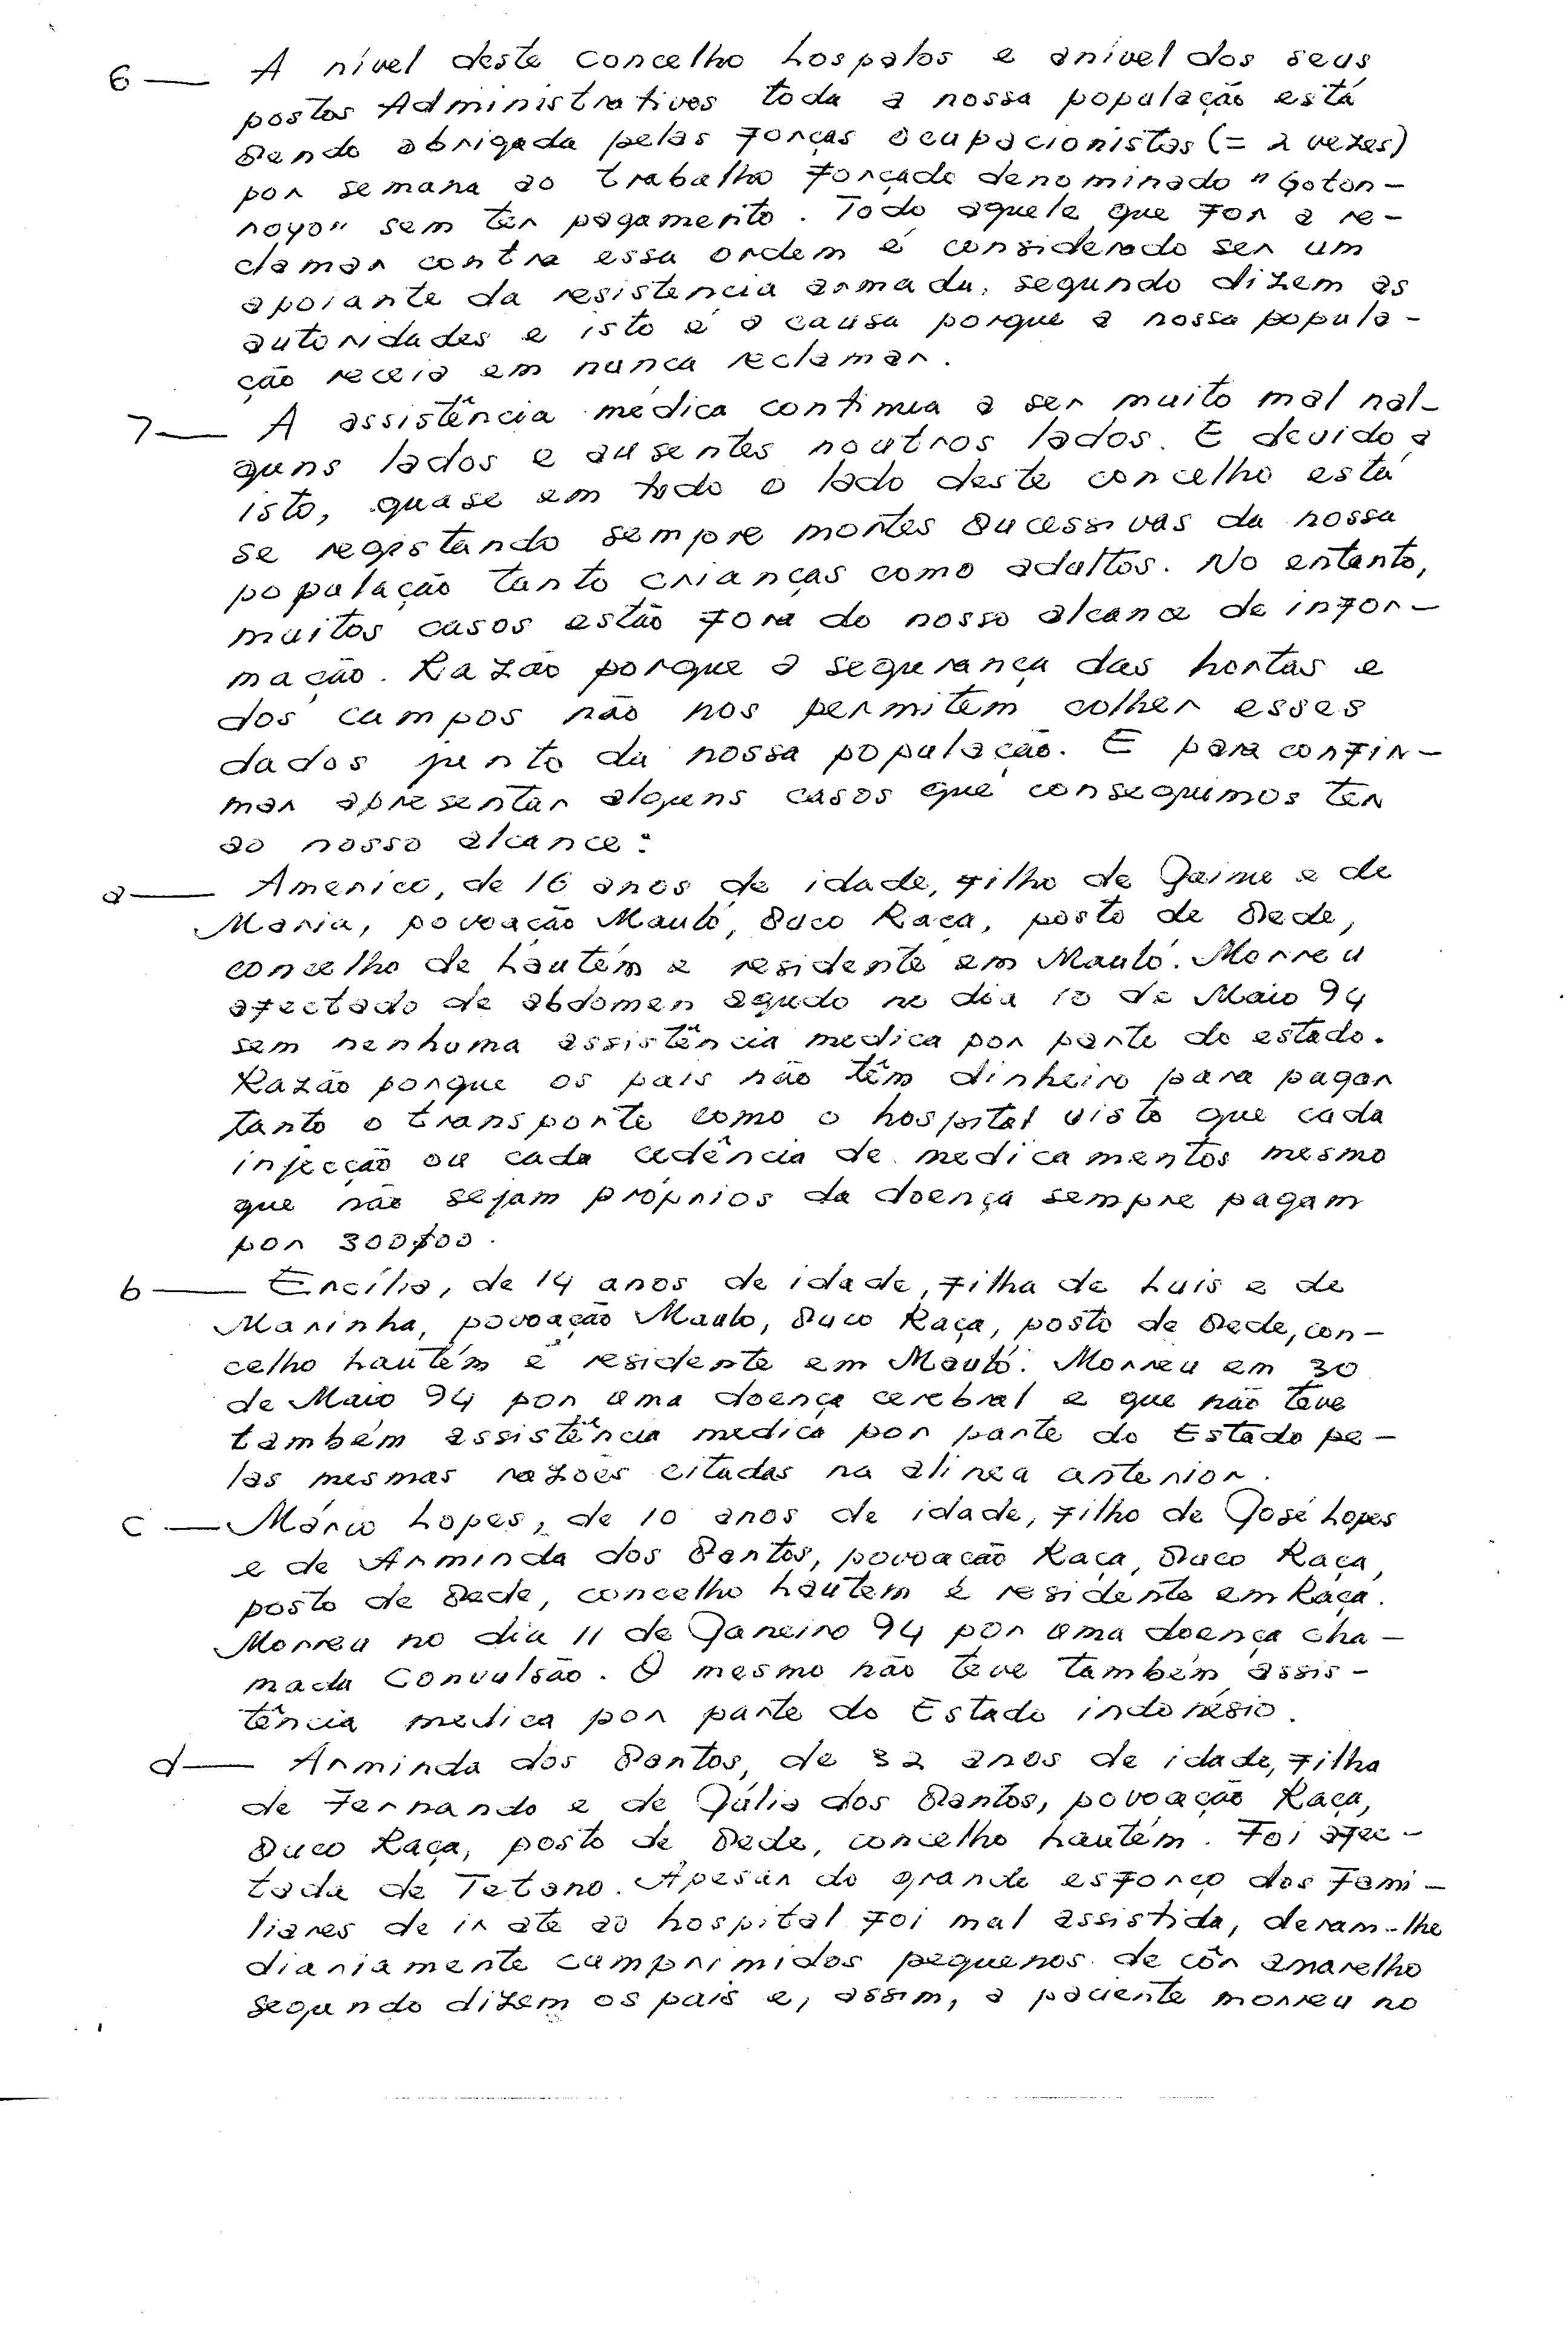 6 — A nível deste concelho Lospalos e anível dos seus
postos Administrativos toda a nossa população está
sendo obrigada pelas forças ocupacionistas (= 2 vezes)
por semana ao trabalho forçado denominado "Goton-
royo" sem ter pagamento. Todo aquele que for a re-
clamar contra essa ordem é considerado ser um
apoiante da resistencia armada, segundo dizem as
autoridades e isto é a causa porque a nossa popula-
ção receia em nunca reclamar.
7 — A assistência médica continua a ser muito mal nal-
guns lados e ausentes noutros lados. E devido a
isto, quase em todo o lado deste concelho está
se registando sempre mortes sucessivas da nossa
população tanto crianças como adultos. No entanto,
muitos casos estão fora do nosso alcance de infor-
mação. Razão porque a segurança das hortas e
dos campos não nos permitem colher esses
dados junto da nossa população. E para confir-
mar apresentar alguns casos que conseguimos ter
ao nosso alcance:
a — Americo, de 16 anos de idade, filho de Jaime e de
Maria, povoação Mauló, Suco Raça, posto de Sede,
concelho de Lautém e residente em Mauló. Morreu
afectado de abdomen agudo no dia 10 de Maio 94
sem nenhuma assistência medica por parte do estado.
Razão porque os pais não têm dinheiro para pagar
tanto o transporte como o hospital visto que cada
injecção ou cada cedência de medicamentos mesmo
que não sejam próprios da doença sempre pagam
por 300$00.
b — Ercília, de 14 anos de idade, filha de Luis e de
Marinha, povoação Maulo, Suco Raça, posto de Sede, con-
celho Lautém e residente em Mauló. Morreu em 30
de Maio 94 por uma doença cerebral e que não teve
também assistência medica por parte do Estado pe-
las mesmas razões citadas na alinea anterior.
c — Mário Lopes, de 10 anos de idade, filho de José Lopes
e de Arminda dos Santos, povoação Raça, Suco Raça,
posto de Sede, concelho Lautem e residente em Raça.
Morreu no dia 11 de Janeiro 94 por uma doença cha-
mada Convulsão. O mesmo não teve também assis-
tência medica por parte do Estado indonésio.
d — Arminda dos Santos, de 32 anos de idade, filha
de Fernando e de Júlia dos Santos, povoação Raça,
Suco Raça, posto de Sede, concelho Lautém. Foi afec-
tada de Tetano. Apesar do grande esforço dos fami-
liares de ir ate ao hospital foi mal assistida, deram-lhe
diariamente cumprimidos pequenos de côr amarelho
segundo dizem os pais e, assim, a paciente morreu no